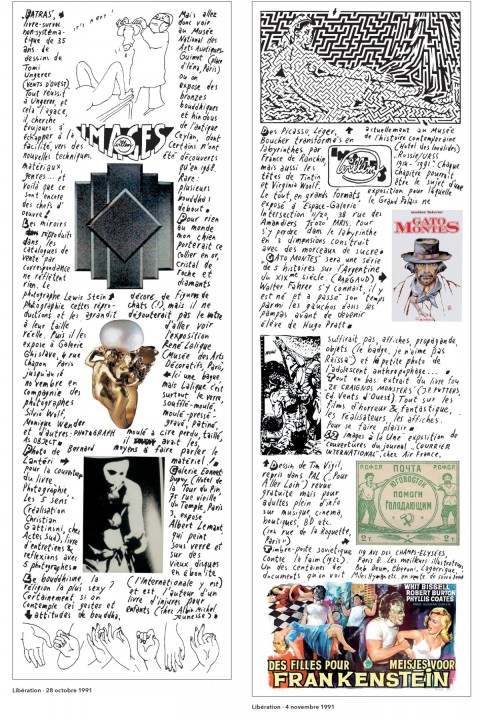 "PATRAS",
livre-survol
non-systéma-
tique de 35
ans de
dessins de
Tomi
Ungerer
(VENTS D'OUEST)
Tout réussit
à Ungerer, et
cela l'agace,
il cherche
toujours à
échapper à la
facilité, vers des
nouvelles techniques,
matériaux,
genres... et
voilà que ce
sont encore
des chefs d'
oeuvre!
Mais allez
donc voir
au Musée
National des
Arts Asiatiques-
Guimet (place
d'Iéna, Paris)
où on
expose des
bronzes
bouddhiques
et hindous
de l'antique
Ceylan, dont
certains n'ont
été découverts
qu'en 1968.
Rare:
plusieurs
bouddhas
debout.
IMAGES
Willem
Des miroirs
reproduits
dans les
catalogues de
vente par
correspondance
ne reflètent
rien. Le
photographe Lewis Stein
photographie cette repro-
ductions et les agrandit
à leur taille
réelle. Puis il les
expose à Galerie
Ghislave, 4 rue
Chapon Paris
jusqu'au 16
novembre en
compagnie des
photographes
Silvio Wolf,
Monique Wender
et d'autres.
Pour rien
au monde
mon chien
porterait ce
collier en or,
cristal de
roche et
diamants
décoré de figures de
chats (!), mais il ne
dégouterait pas le maître
d'aller voir
l'exposition
René Lalique
(Musée des Arts
Décoratifs, Paris)
Ici une bague
mais Lalique c'est
surtout le verre,
soufflé-moulé,
moulé-pressé,
gravé, patiné,
moulé à cire perdu, taillé,
il avait les
moyens à faire parler le
matériel!
Photo de Bernard
Lantéri
pour la couverture
du livre
Photographie,
Les 5 sens
(réalisation
Christian
Gattinoni, chez
Actes Sud), livre
d'entretiens &
réflexions avec
5 photographes.
Galerie Eonnet
Dupuy, (Hotel de
la Tour du Pin
75 rue vieille
du Temple, Paris
3, expose
Albert Lemant
qui peint
sous verre et
sur des
vieux disques
en ébonite
(l'Internationale y né)
et est l'auteur d'un
livre d'injures pour
enfants (chez Albin Michel
Jeunesse)
Le bouddhisme, la
religion la plus sexy!
Certainement si on
contemple ces gestes et
attitudes de bouddha.
Libération - 28 octobre 1991
Des Picasso, Léger,
Boucher transformés en
labyrinthes par
France de Ranchin
mais aussi les
têtes de Tintin
et Virginia Woolf.
Le tout, en grands formats
exposé à Espace-Galerie
Intersection 11/20, 38 rue des
Amandiers 75020 PARIS. Pour
s'y perdre dans le labyrinthe
en 3 dimensions construit
avec des morceaux de sucre
IMAGES
Willem
actuellement au Musée
de l'histoire contemporaine
(Hotel des Invalides)
"Russie/URSS
1914-1991". Chaque
chapitre pourrait
être le sujet d'une
exposition pour laquelle
le Grand Palais ne
"GATO MONTES" sera une série
de 5 histoires sur l'Argentine
du XIXme siècle (DARGAUD)
Walter Fahrer s'y connait, il y
est né et a passé son temps
parmi les gauchos dans les
pampas avant de devenir
élève de Hugo Pratt.
walter fahrer
GATO
MONTES
suffirait pas, affiches, propagande,
objets (le badge, je n'aime pas
Raïssa) et la petite photo de
l'adolescent anthropophage...
Tout en bas extrait du livre fou
"ZE CRAIGNOS MONSTERS" (J.P. PUTTERS,
Ed. Vents d'Ouest) Tout sur les
films d'horreur & fantastique,
les réalisateurs, les affiches.
Pour se faire plaisir.
images à la Une" exposition de
couvertures du journal "COURRIER
INTERNATIONAL", chez Air France,
119 AVE DES CHAMPS-ELYSÉES,
Paris 8. Les meilleurs illustrateurs,
Miles Hyman etc. en vente de
Dessin de Tim Vigil,
repris dans PAL ("Pour
Aller Loin") revue
gratuite mais pour
adultes plein d'info
sur musique, cinéma,
boutiques, BD etc.
(rue de la Roquette,
Paris 11)
Timbre-poste soviétique
contre la faim (1922).
Un des centaines de
documents qu'on voit
Р.С.Ф.С.Р. Р.С.Ф.С.Р.
ПОЧТА
ЮГОВОСТОК
ПОМОГИ
ГОЛОДАЮЩИМ
2 т. 2 т.
WHIT BISSELL
ROBERT BURTON
PHYLLIS COATES
DES FILLES POUR MEISJES VOOR
FRANKENSTEIN
Libération - 4 novembre 1991